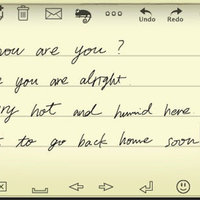 Undo Redo
you are you ?
you are alright.
hot and humid here
to go back home soon